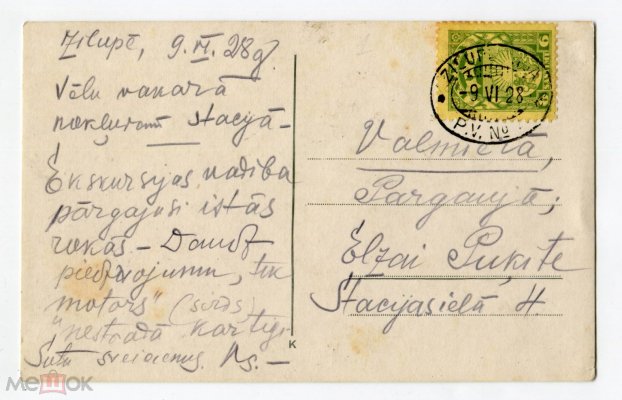 Zilupē, 9.VI.28g.
Vēlu vakarā
nokļuvām stacijā –
Ekskursijas vadība
pārgājusi istās
rokās – Daudz
piedzīvojumu, tik
„motors” (sirds)
nestrādā kārtīgi
Sūtu sveicienus. As. –
ZILUPE
-9 VI 28
P.V. №
Valmierā,
Pārgaujā,
Elzai Puķīte
Stacijas ielā 4.
K
МЕШОК